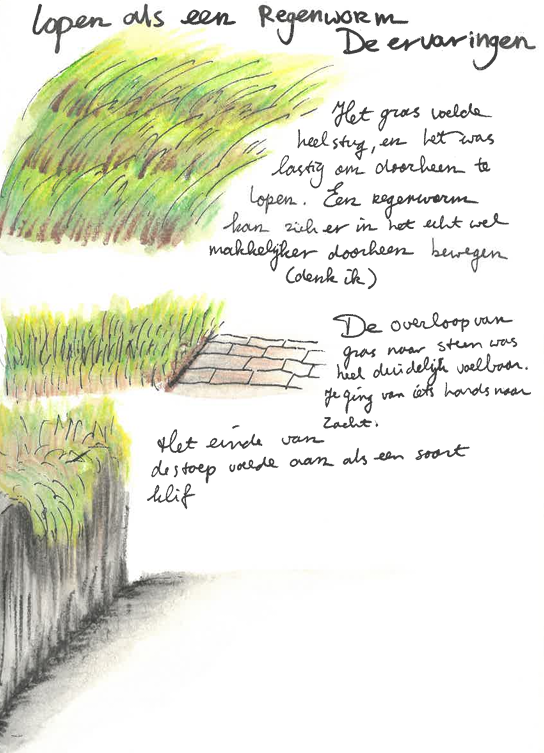 lopen als een Regenworm
De ervaringen
Het gras voelde
heel stug, en het was
lastig om doorheen te
lopen. Een regenworm
kan zich er in het echt wel
makkelijker doorheen bewegen
(denk ik)
De overloop van
gras naar steen was
heel duidelijk voelbaar.
Je ging van iets hards naar
Zacht.
Het einde van
de stoep voelde aan als een soort
klif